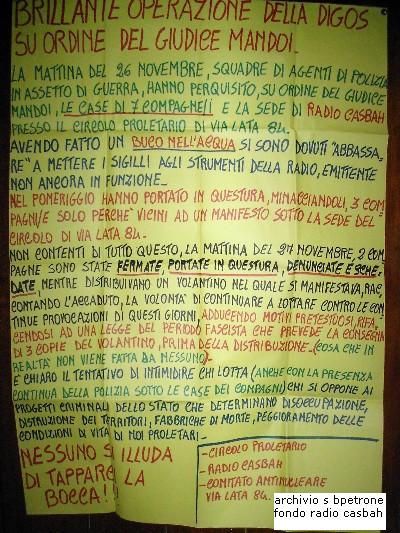 BRILLANTE OPERAZIONE DELLA DIGOS
SU ORDINE DEL GIUDICE MANDOI_
LA MATTINA DEL 26 NOVEMBRE, SQUADRE DI AGENTI DI POLIZIA
IN ASSETTO DI GUERRA, HANNO PERQUISITO, SU ORDINE DEL GIUDICE
MANDOI, LE CASE DI 7 COMPAGNE/I E LA SEDE DI RADIO CASBAH
PRESSO IL CIRCOLO PROLETARIO DI VIA LATA 84.
AVENDO FATTO UN BUCO NELL'ACQUA SI SONO DOVUTI "ABBASSA_
RE" A METTERE I SIGILLI AGLI STRUMENTI DELLA RADIO, EMITTENTE
NON ANCORA IN FUNZIONE_
NEL POMERIGGIO HANNO PORTATO IN QUESTURA, MINACCIANDOLI, 3 COM_
PAGNI/E SOLO PERCHE' VICINI AD UN MANIFESTO SOTTO LA SEDE DEL
CIRCOLO DI VIA LATA 84.
NON CONTENTI DI TUTTO QUESTO, LA MATTINA DEL 27 NOVEMBRE, 2 COM
PAGNE SONO STATE FERMATE, PORTATE IN QUESTURA, DENUNCIATE E SCHE_
DATE, MENTRE DISTRIBUIVANO UN VOLANTINO NEL QUALE SI MANIFESTAVA, RAC_
CONTANDO L'ACCADUTO, LA VOLONTÀ DI CONTINUARE A LOTTARE CONTRO LE CON_
TINUE PROVOCAZIONI DI QUESTI GIORNI, ADDUCENDO MOTIVI PRETESTUOSI, RIFA_
CENDOSI AD UNA LEGGE DEL PERIODO FASCISTA CHE PREVEDE LA CONSEGNA
DI 3 COPIE DEL VOLANTINO, PRIMA DELLA DISTRIBUZIONE_ (COSA CHE IN
REALTA' NON VIENE FATTA DA NESSUNO)_
E CHIARO IL TENTATIVO DI INTIMIDIRE CHI LOTTA (ANCHE CON LA PRESENZA
CONTINUA DELLA POLIZIA SOTTO LE CASE DEI COMPAGNI) CHI SI OPPONE AI
PROGETTI CRIMINALI DELLO STATO CHE DETERMINANO DISOCCUPAZIONE,
DISTRUZIONE DEI TERRITORI, FABBRICHE DI MORTE, PEGGIORAMENTO DELLE
CONDIZIONI DI VITA DI NOI PROLETARI_
NESSUNO SI ILLUDA
DI TAPPARCI LA
BOCCA!
- CIRCOLO PROLETARIO
- RADIO CASBAH
- COMITATO ANTINUCLEARE
VIA LATA 84.
archivio s bpetrone
fondo radio casbah